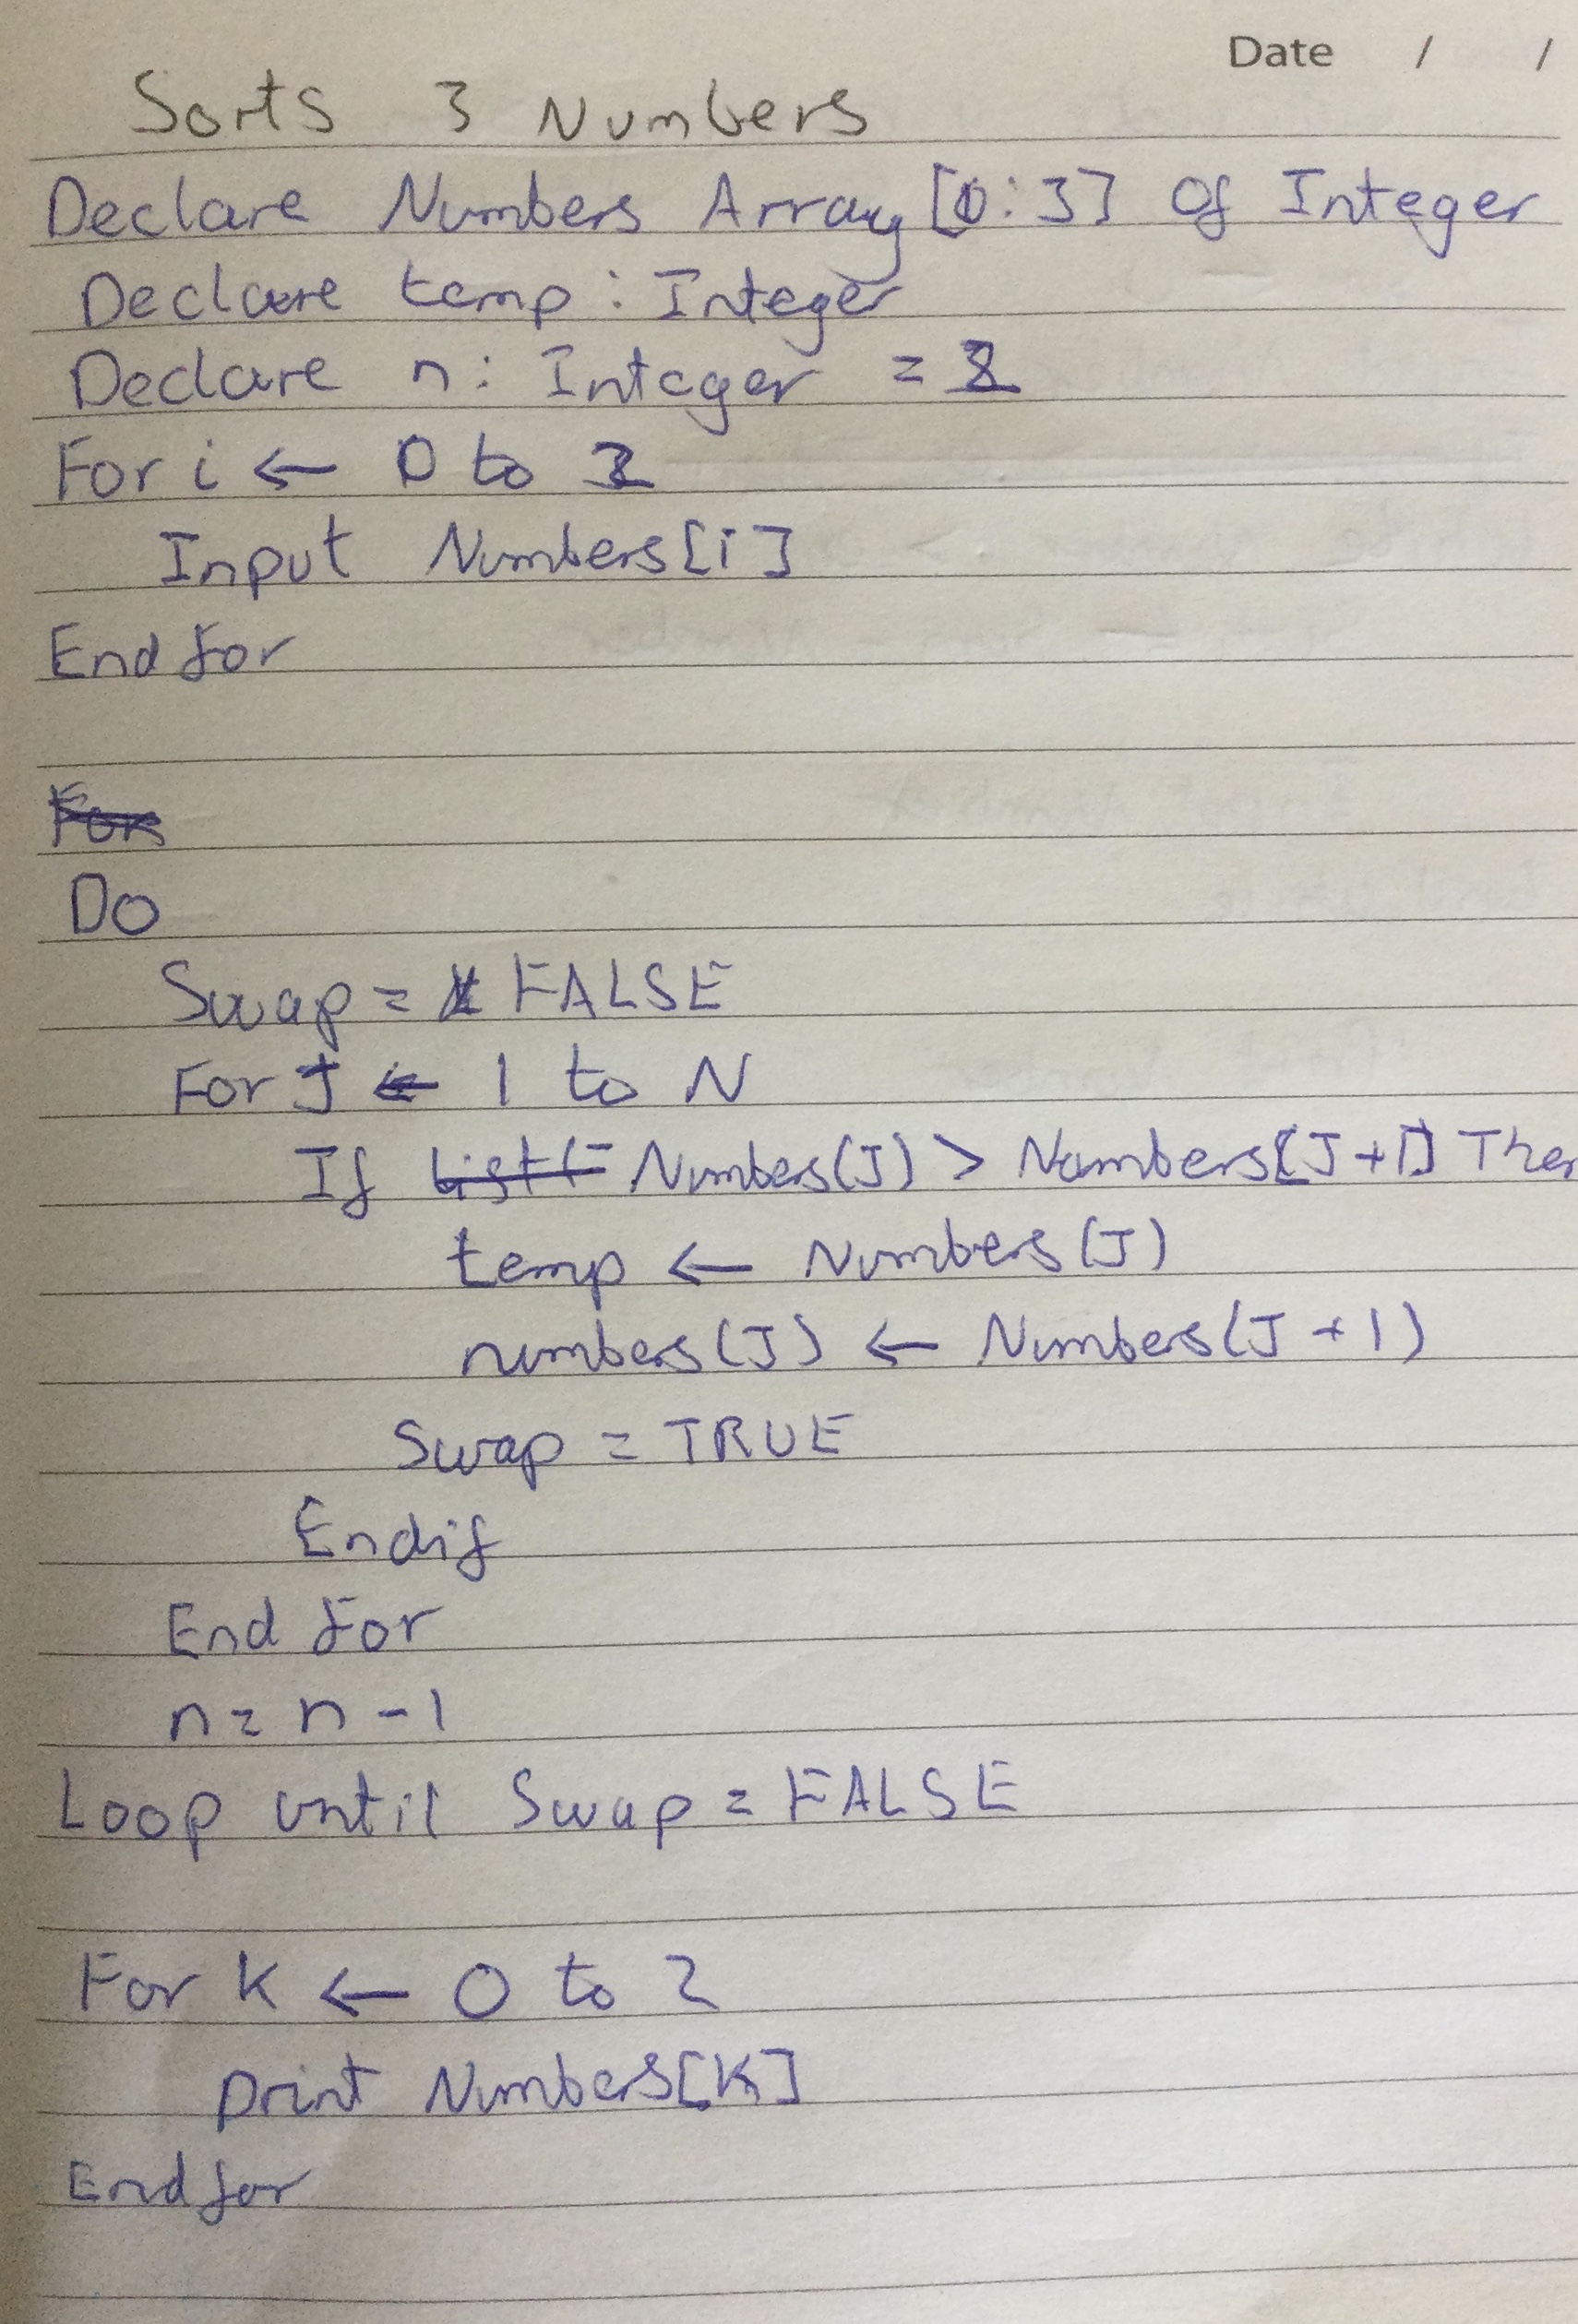 Date / /
Sorts 3 Numbers
Declare Numbers Array[0:3] Of Integer
Declare temp: Integer
Declare n: Integer = 2
For i ← 0 to 2
Input Numbers[i]
End for
For
Do
Swap = FALSE
For J ← 1 to N
If List( Numbers(J) > Numbers[J+1] Then
temp ← Numbers(J)
numbers(J) ← Numbers(J+1)
Swap = TRUE
Endif
End for
n = n - 1
Loop until Swap = FALSE
For K ← 0 to 2
print Numbers[K]
Endfor